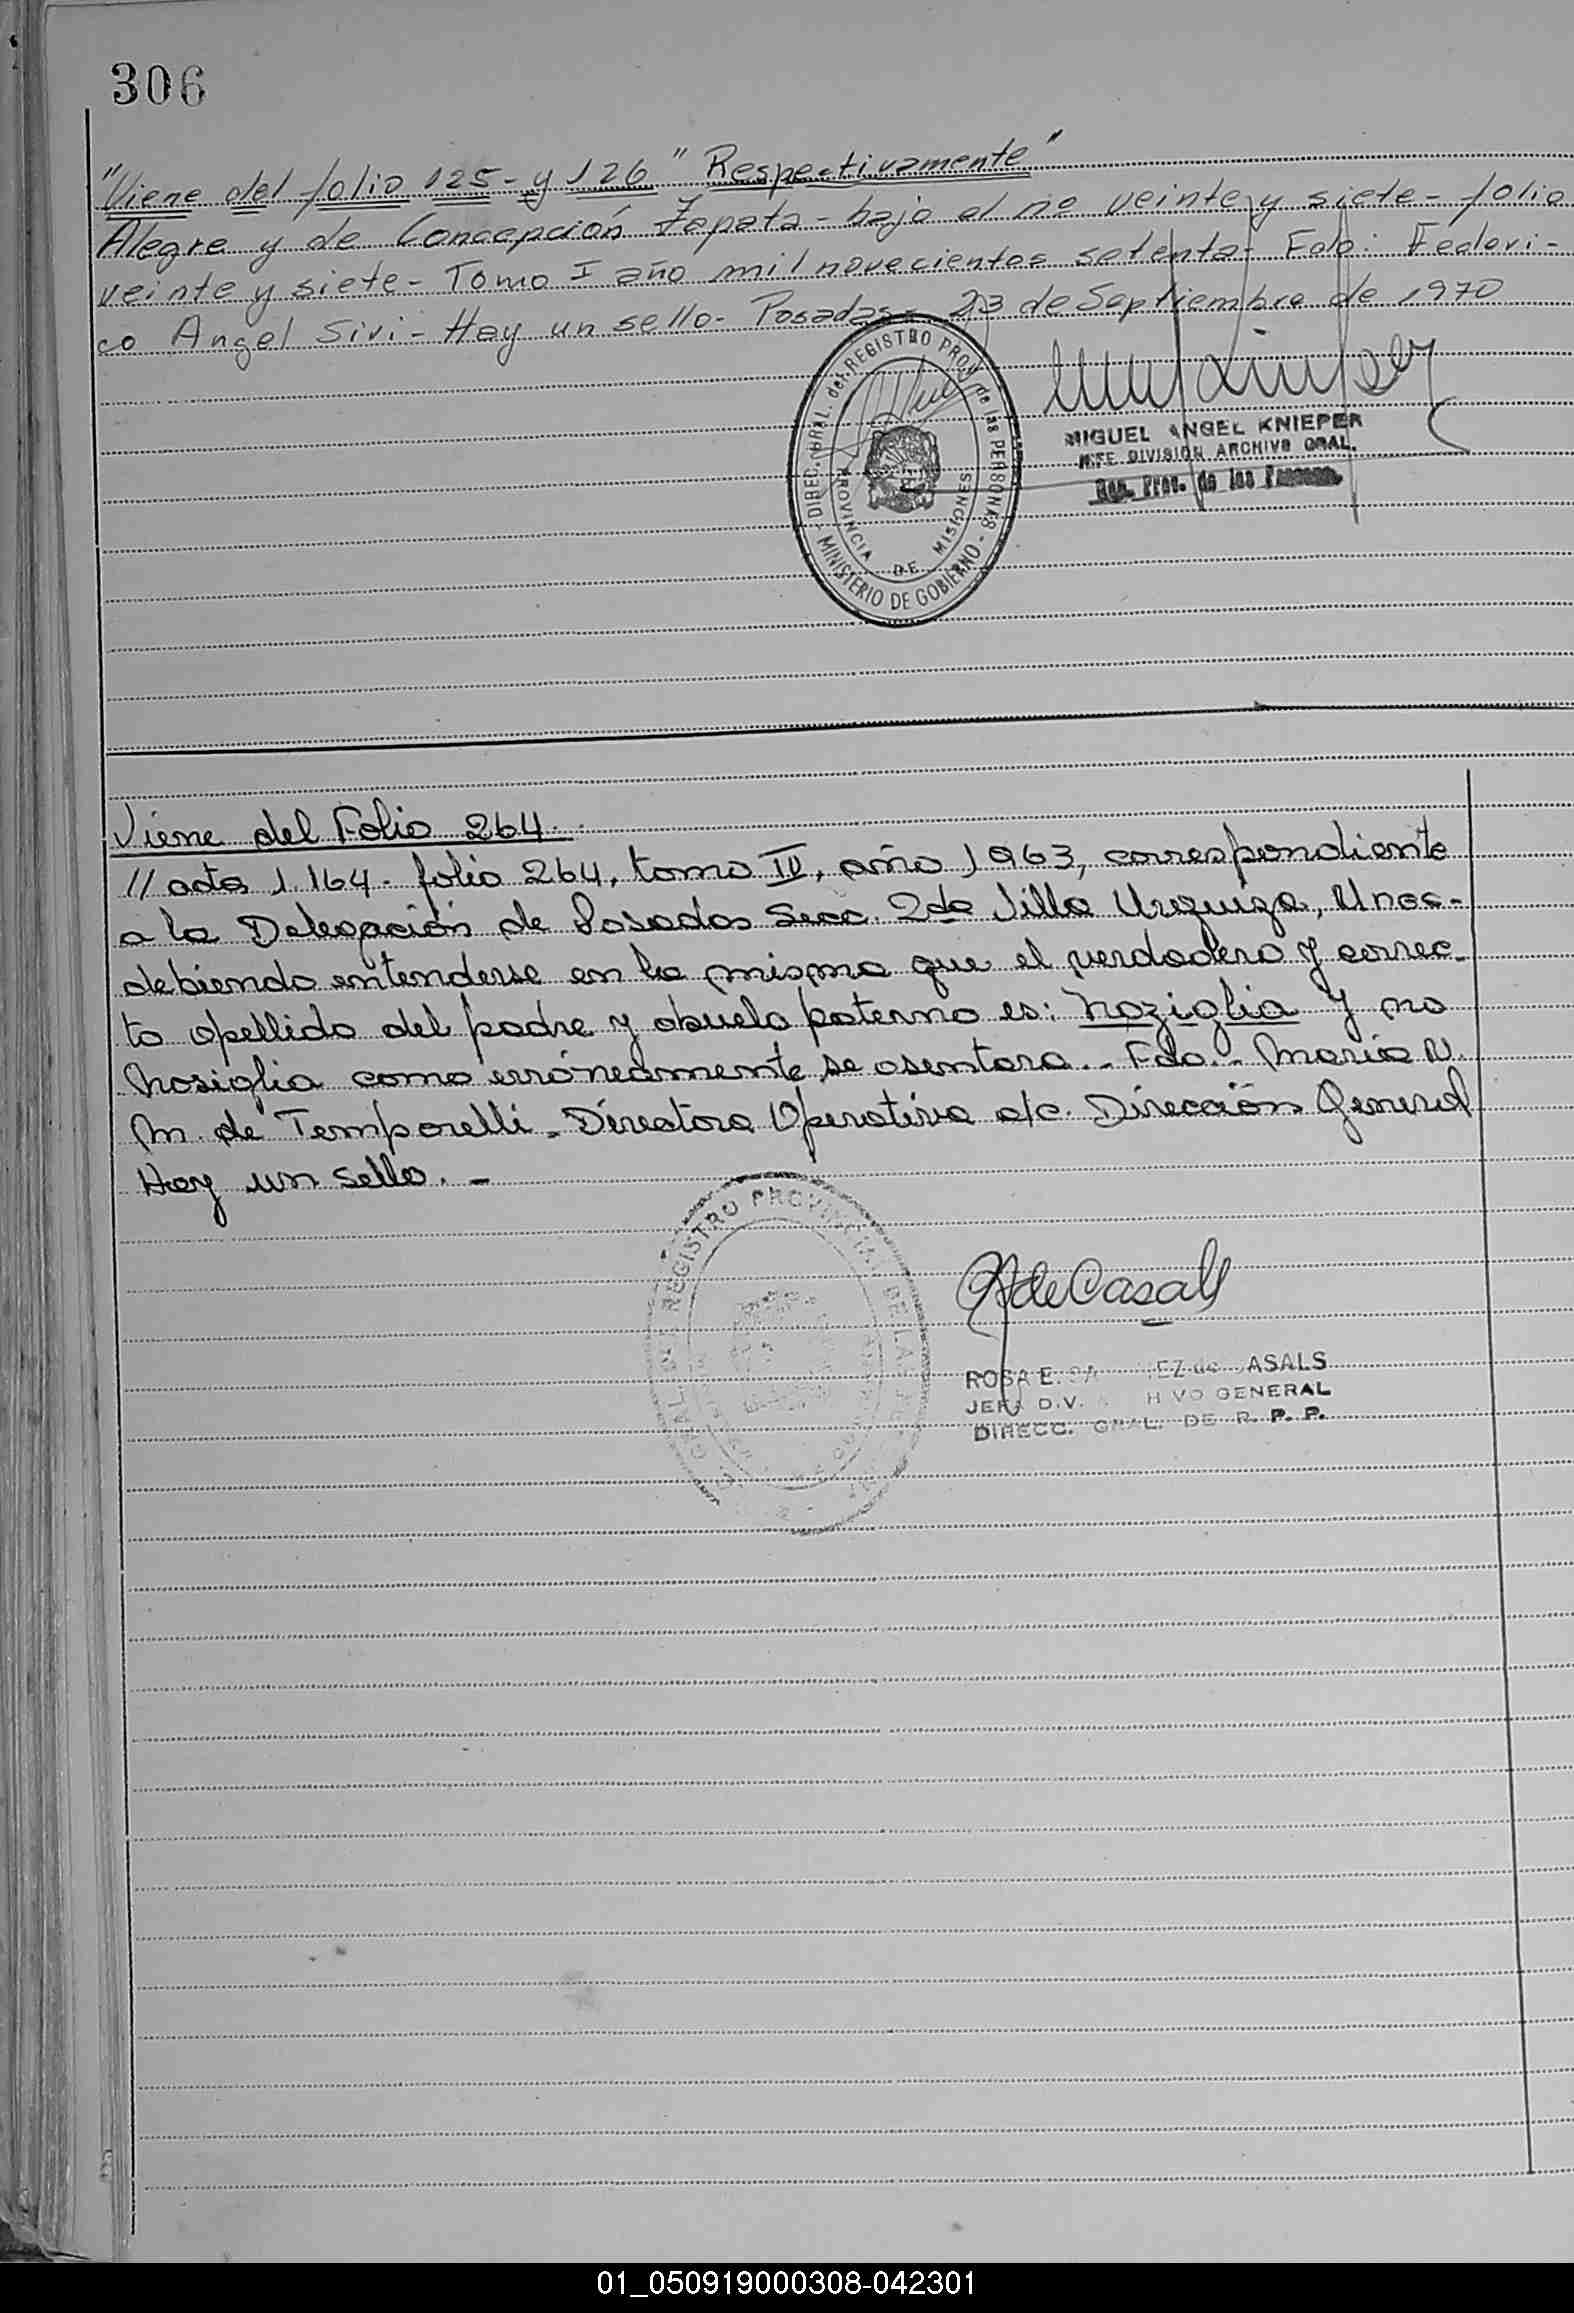 306
"Viene del folio 125- y 126 " Respectivamente "
Alegre y de Concepción Zapata - bajo el nº veinte y siete - folio
veinte y siete - Tomo I año mil novecientos setenta - Fdo: Federi-
co Angel Sivi - Hay un sello - Posadas, 23 de Septiembre de 1970
DIREC. GRAL. del REGISTRO PROV. de las PERSONAS
MINISTERIO DE GOBIERNO
PROVINCIA DE MISIONES
MIGUEL ANGEL KNIEPER
JEFE DIVISION ARCHIVO GRAL.
Reg. Prov. de las Personas
Viene del Folio 264
// acta 1.164 - folio 264, tomo IV, año 1963, correspondiente
a la Delegación de Posadas Secc. 2da Villa Urquiza, Mnes-
debiendo entenderse en la misma que el verdadero y correc-
to apellido del padre y abuelo paterno es: Noziglia y no
Nosiglia como erróneamente se asentara.- Fdo.- María N.
M. de Temporelli - Directora Operativa a/c. Dirección General
Hay un sello. -
GRAL. DEL REGISTRO PROVINCIAL DE LAS
RdeCasals
ROSA E. EZ de CASALS
JEFA DIV. ARCHIVO GENERAL
DIRECC. GRAL. DE R. P. P.
01_050919000308-042301